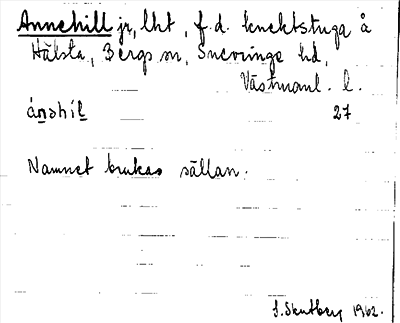 Annehill jr, lht, f.d. knektstuga å
Hälsta, Bergs sn, Snevringe hd,
Västmanl. l.
ánəhíl 27
Namnet brukas sällan.
1962.